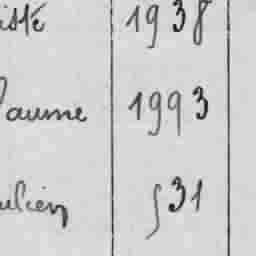 iste 1938
aume 1993
ulien 531